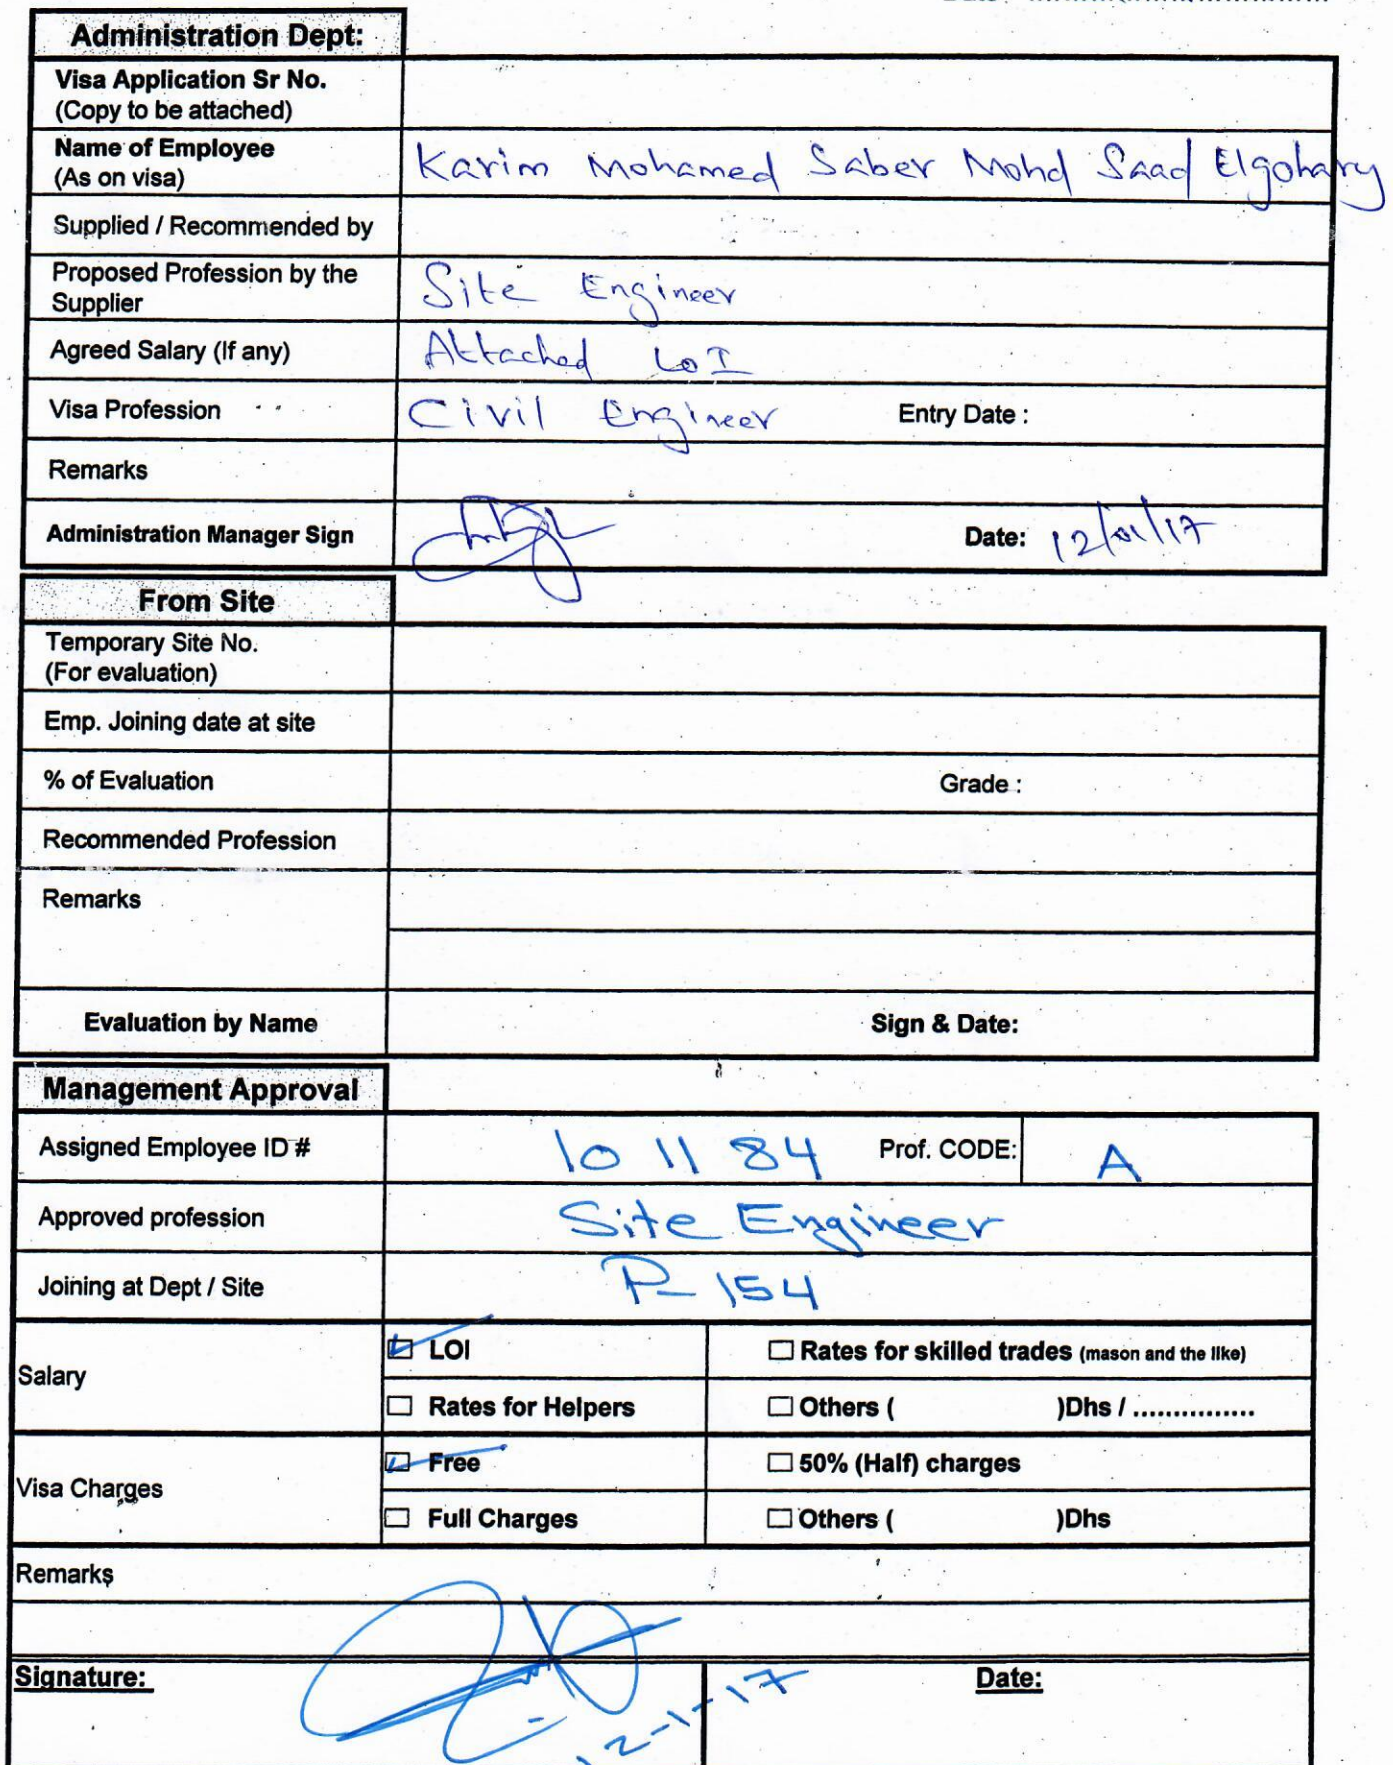 Administration Dept:
Visa Application Sr No.
(Copy to be attached)
Name of Employee
(As on visa)
Karim Mohamed Saber Mohd Saad Elgohary
Supplied / Recommended by
Proposed Profession by the
Supplier
Site Engineer
Agreed Salary (If any)
Attached LOI
Visa Profession
Civil Engineer
Entry Date :
Remarks
Administration Manager Sign
Date: 12/01/17
From Site
Temporary Site No.
(For evaluation)
Emp. Joining date at site
% of Evaluation
Grade :
Recommended Profession
Remarks
Evaluation by Name
Sign & Date:
Management Approval
Assigned Employee ID #
10 11 84
Prof. CODE:
A
Approved profession
Site Engineer
Joining at Dept / Site
P-154
Salary
LOI
Rates for skilled trades (mason and the like)
Rates for Helpers
Others ( )Dhs / ...............
Visa Charges
Free
50% (Half) charges
Full Charges
Others ( )Dhs
Remarks
Signature:
12-1-17
Date: